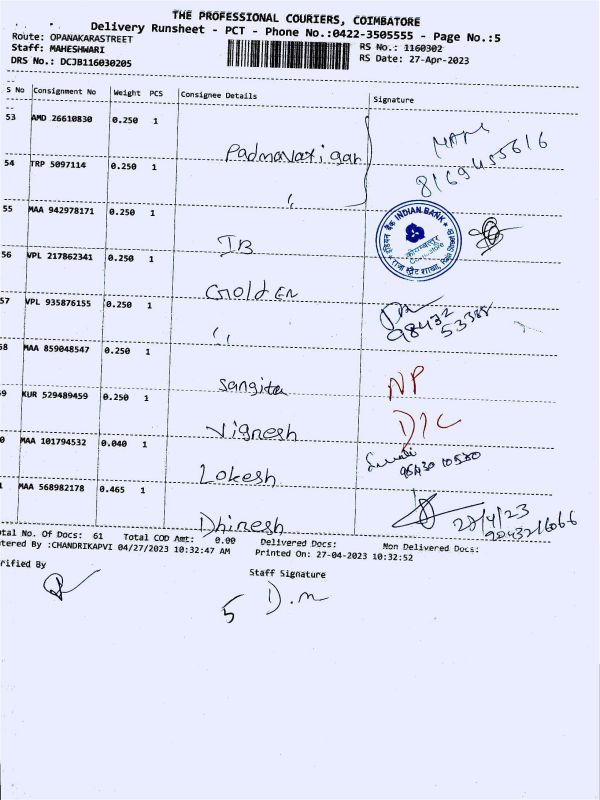 THE PROFESSIONAL COURIERS, COIMBATORE
Delivery Runsheet - PCT - Phone No.:0422-3505555 - Page No.:5
Route: OPANAKARASTREET
RS No.: 1160302
Staff: MAHESHWARI
RS Date: 27-Apr-2023
DRS No.: DCJB116030205
S No Consignment No Weight PCS Consignee Details Signature
53 AMD 26610830 0.250 1 Padmavati gar
8169455616
54 TRP 5097114 0.250 1 "
55 MAA 942978171 0.250 1 IB
इंडियन बैंक INDIAN BANK
कोयम्बत्तूर
Coimbatore
56 VPL 217862341 0.250 1 Golden
98432
53388
57 VPL 935876155 0.250 1 "
58 MAA 859048547 0.250 1 Sangita NP
9 KUR 529489459 0.250 1 Vignesh D/C
0 MAA 101794532 0.040 1 Lokesh
95430 10580
1 MAA 568982178 0.465 1 Dhinesh
27/4/23
9043216066
otal No. Of Docs: 61 Total COD Amt: 0.00 Delivered Docs: Non Delivered Docs:
ntered By :CHANDRIKAPVI 04/27/2023 10:32:47 AM Printed On: 27-04-2023 10:32:52
rified By
Staff Signature
5 D.m